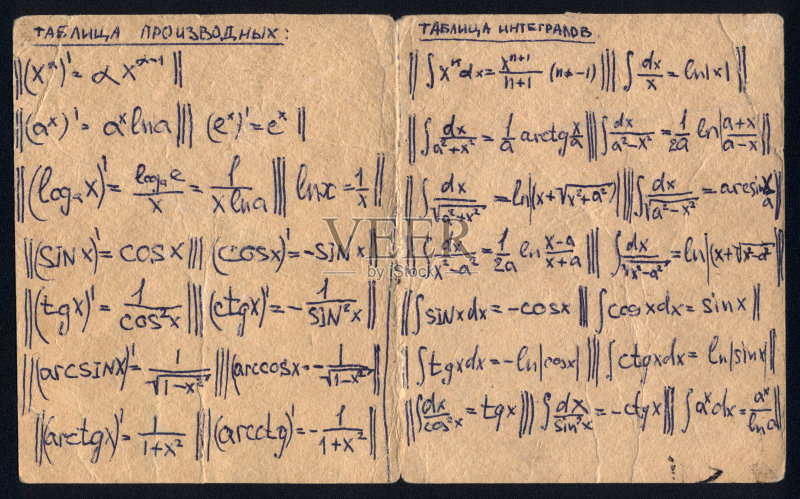 ТАБЛИЦА ПРОИЗВОДНЫХ:
||(x^α)' = αx^(α-1)||
||(a^x)' = a^x ln a||| (e^x)' = e^x||
||(log_a x)' = log_a e / x = 1 / (x ln a)||| ln x = 1/x||
||(sin x)' = cos x||| (cos x)' = -sin x||
||(tg x)' = 1 / cos²x|||(ctg x)' = -1 / sin²x||
||(arcsin x)' = 1 / √(1-x²)|||(arccos x = -1 / √(1-x²)||
||(arctg x)' = 1 / (1+x²)|||(arcctg)' = -1 / (1+x²)||
ТАБЛИЦА ИНТЕГРАЛОВ
||∫x^n dx = x^(n+1) / (n+1) (n≠-1)|||∫dx/x = ln|x|||
||∫dx / (a²+x²) = 1/a arctg x/a|||∫dx / (a²-x²) = 1/2a ln|(a+x)/(a-x)|||
||∫dx / √(a²+x²) = ln|(x+√(x²+a²)|||∫dx / √(a²-x²) = arcsin x/a||
||∫dx / (x²-a²) = 1/2a ln (x-a)/(x+a)|| ∫dx / √(x²-a²) = ln|(x+√(x²-a²)||
||∫sin x dx = -cos x|||∫cos x dx = sin x||
||∫tg x dx = -ln|cos x||||∫ctg x dx = ln|sin x|||
||∫dx / cos²x = tg x|||∫dx / sin²x = -ctg x|||∫a^x dx = a^x / ln a||
VEER
by iStock